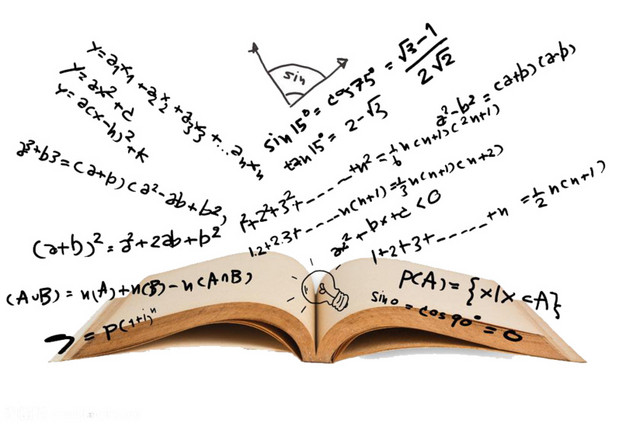 y=a₁x₁+a₂x₂+a₃x₃+...aₙxₙ
y=ax²+c
y=a(x-h)²+k
a³+b3=(a+b)(a²-ab+b²)
(a+b)²=a²+2ab+b²
(A∪B)=n(A)+n(B)-n(A∩B)
=P(1+i)ⁿ
sin
sin15°=cos75°=√3-1/2√2
tan15°=2-√3
a²-b²=(a+b)(a-b)
1²+2²+3²+......+n²=1/6n(n+1)(2n+1)
1.2+2.3+......n(n+1)=1/3n(n+1)(n+2)
ax²+bx+c<0
1+2+3+......+n=1/2n(n+1)
P(A)={x|x⊂A}
sin0=cos90°=0